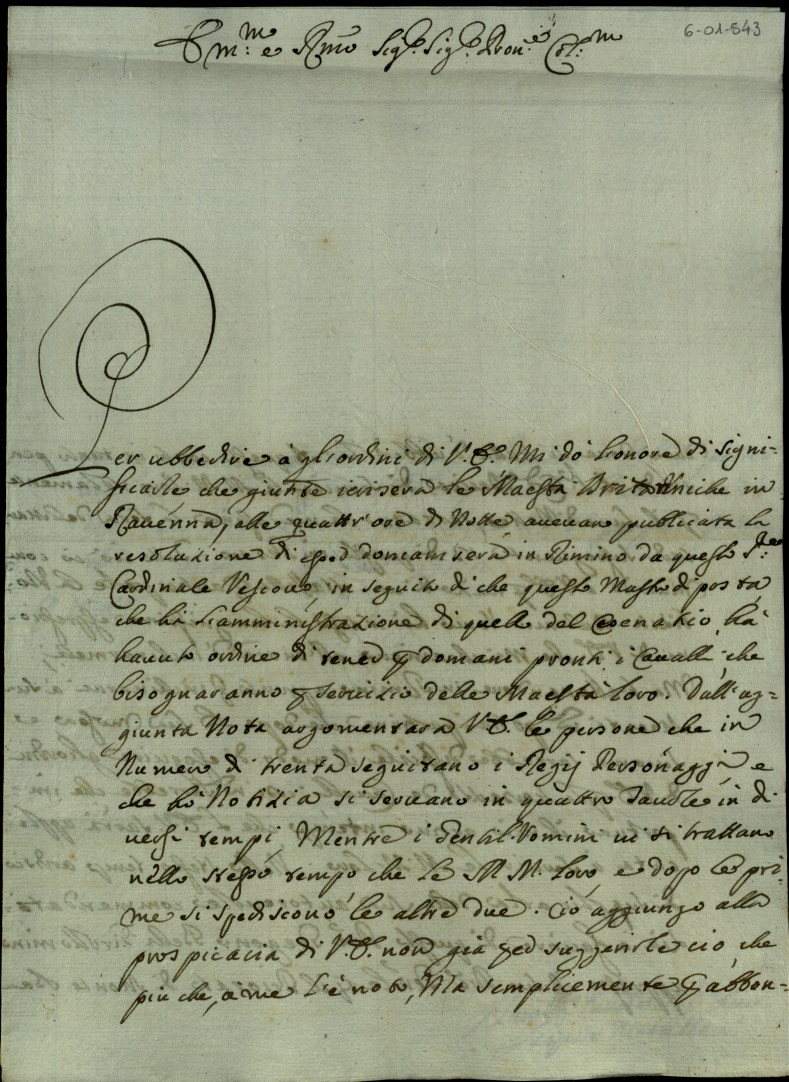 6-01-543
Em:m e Rmo Sig.e Sig.e Pron.e Col:m
Per ubbedire à gl'ordini di V.E. Mi dò l'onore di signi=
ficarle che giunte ieri sera le Maestà Britaniche in
Ravenna, alle quattr'ore di Notte avevano publicata la
resoluzione di domani sera in Rimino da questo
Cardinale Vescovo, in seguito di che questo Mastro di posta,
che hà l'amministrazione di quelle del Cesenatico, hà
havuto ordine di tener p domani pronti i Cavalli che
bisognaranno p servizio delle Maestà Loro. Dall'ag=
giunta Nota argomentarà V.E. le persone che in
Numero di trenta seguitano i Regij Personaggi e
che hò Notizia si servano in quattro Tavole in di
versi tempi, Mentre i Gentil'Vomini vi si trattano
nello stesso tempo che le M.M. Loro, e dopo le pri=
me si spediscono le altre due. Ciò aggiungo alla
prospicacia di V.E. non già per suggerirle ciò, che
più che, à me l'è noto, Ma semplicemente p abbon=